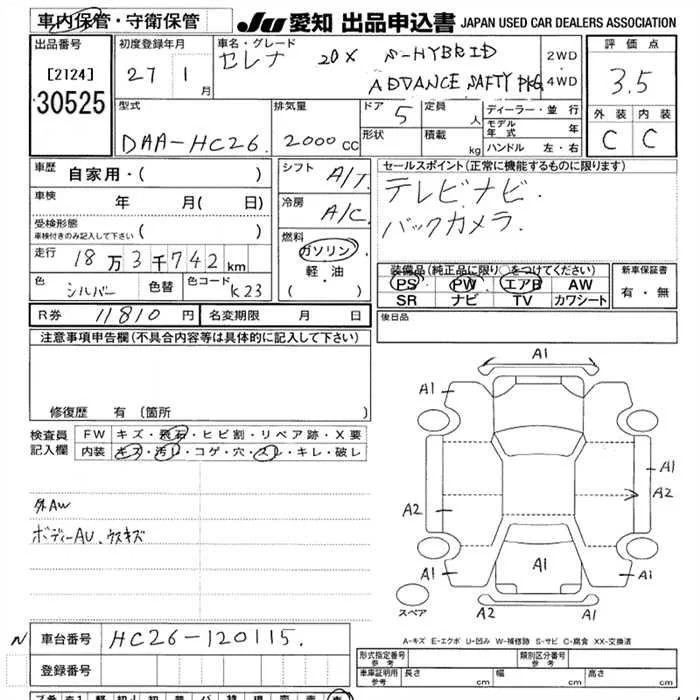 車内保管・守衛保管
JU 愛知 出品申込書 JAPAN USED CAR DEALERS ASSOCIATION
出品番号
[2124]
30525
初度登録年月
27 1 月
車名・グレード
セレナ 20X S-HYBRID
ADDANCE SAFTY PKG.
2WD
・
4WD
評価点
3.5
外装 内装
C C
型式
DAA-HC26.
排気量
2000 CC
ドア
5
定員
人
形状
積載
kg
ディーラー・並行
モデル年式 年
ハンドル 左・右
車歴
自家用・( )
車検
年 月( 日)
受検形態
車検付きのみ記入して下さい ( )
走行
18万3千742km
色
シルバー
色替
色コード K23
シフト
A/T
冷房
A/C
燃料
ガソリン
軽・油
( )
セールスポイント(正常に機能するものに限ります)
テレビナビ・
バックカメラ.
装備品(純正品に限り○をつけてください)
PS PW エアB AW
SR ナビ TV カワシート
新車保証書
有・無
R券 11810 円
名変期限 月 日
後日品
注意事項申告欄(不具合内容等は具体的に記入して下さい)
修復歴 有 (箇所 )
検査員
記入欄
FW キズ・飛石・ヒビ割・リペア跡・X要
内装 キズ・汚レ・コゲ・穴・スレ・キレ・破レ
外AW
ボディーAU、ウスキズ
A1
A1
A1
A1
A2
A2
A1
A1
A1
A2
A1
スペア
A-キズ E-エクボ U-凹み W-補修跡 S-サビ C-腐食 XX-交換済
N 車台番号 HC26-120115.
登録番号
形式指定番号
参考
類別区分番号
参考
車庫証明用
参考
長さ cm 幅 cm 高さ cm